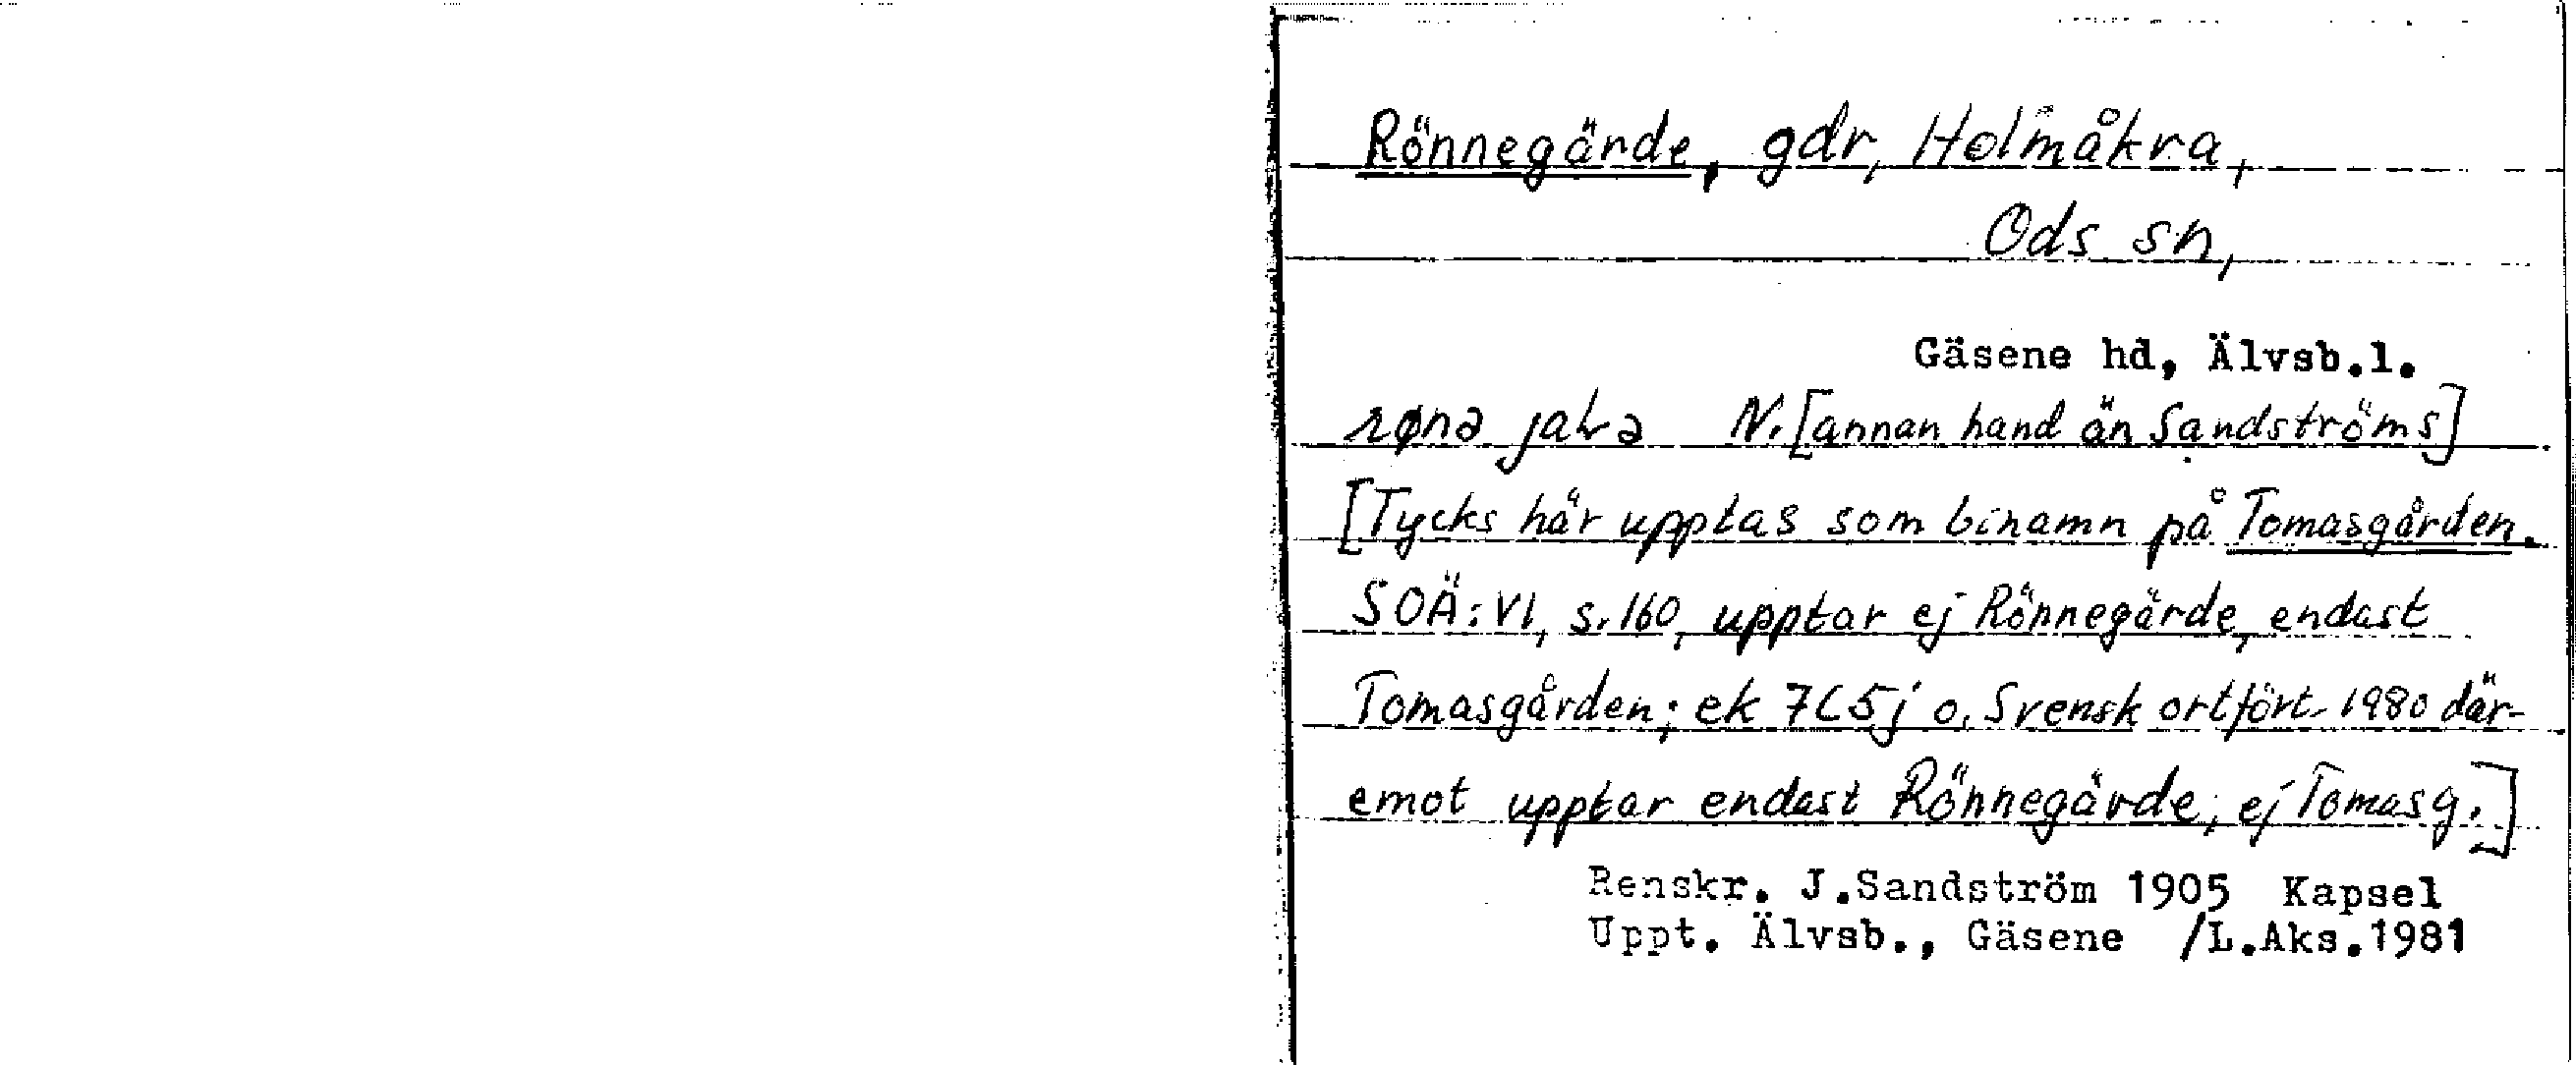 Rönnegärde, gdr, Holmåkra,
Ods sn,
Gäsene hd, Älvsb.l.
N. [annan hand än Sandströms]
[Tycks här upptas som binamn på Tomasgården.
SOÄ: VI, s. 160, upptar ej Rönnegärde, endast
Tomasgården; ek 7C5j o. Svensk ortfört. 1980 där-
emot upptar endast Rönnegärde, ej Tomasg.]
Renskr. J.Sandström 1905 Kapsel
Uppt. Älvsb., Gäsene /L.Aks.1981